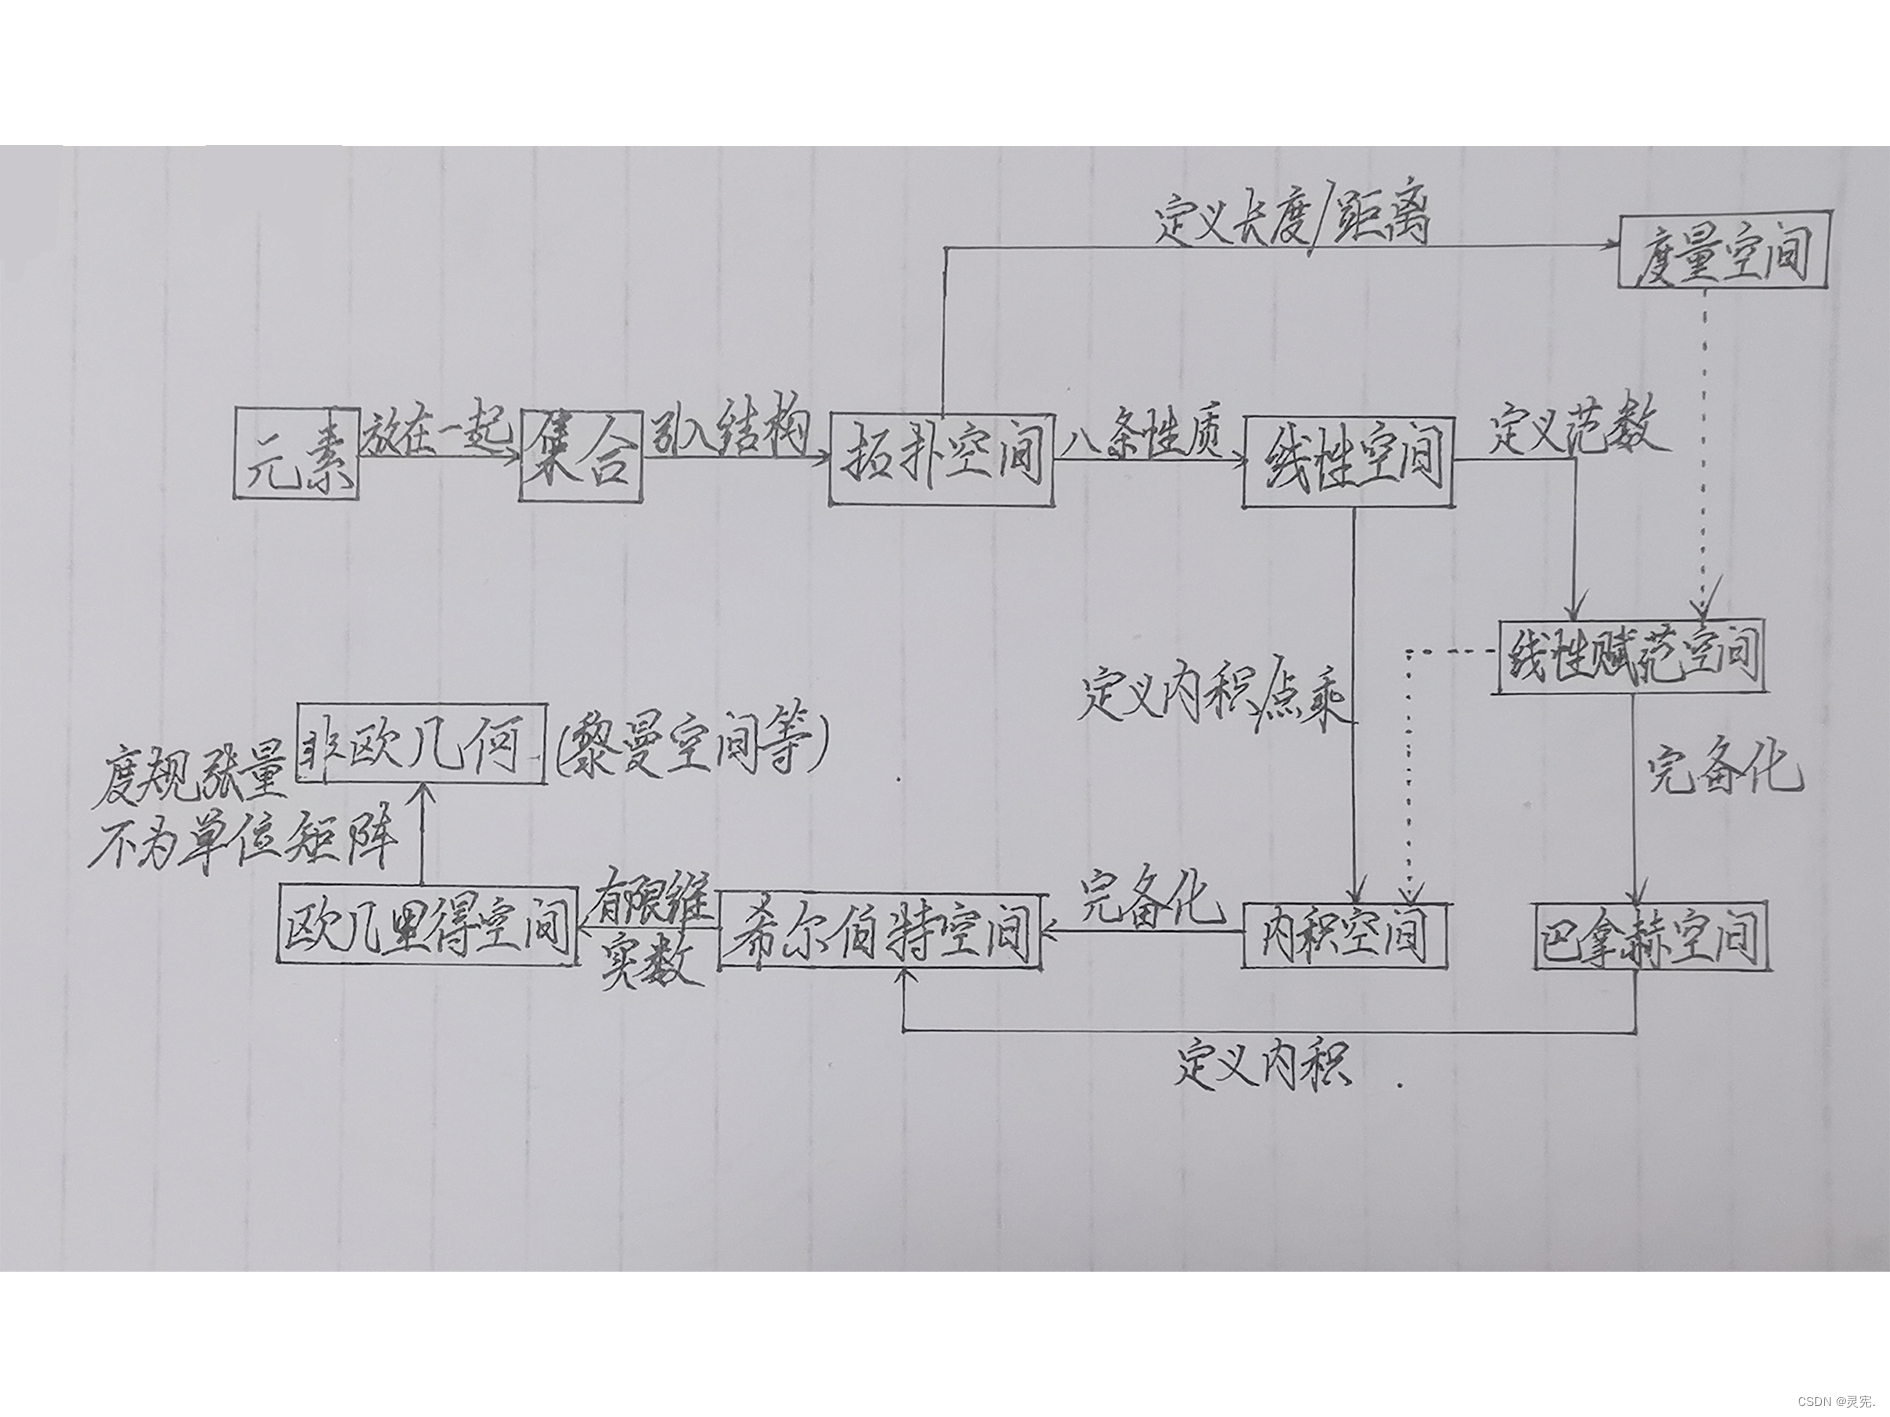 定义长度/距离
度量空间
元素
放在一起
集合
引入结构
拓扑空间
八条性质
线性空间
定义范数
线性赋范空间
定义内积/点乘
完备化
非欧几何
(黎曼空间等)
度规张量
不为单位矩阵
欧几里得空间
有限维
实数
希尔伯特空间
完备化
内积空间
巴拿赫空间
定义内积
CSDN @灵宪.